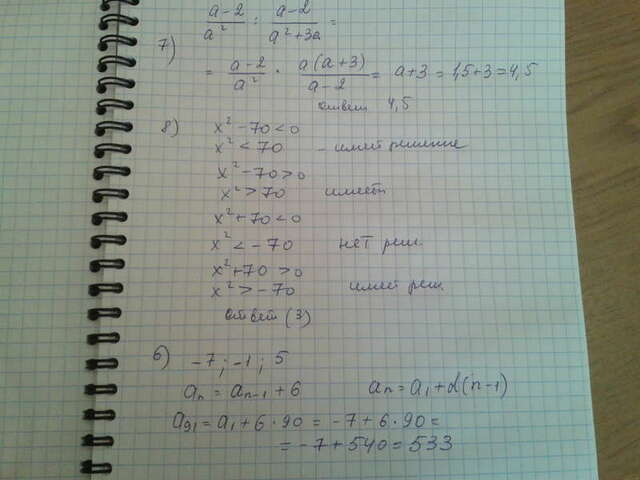 7) (a-2)/a² : (a-2)/(a²+3a) =
= (a-2)/a² · a(a+3)/(a-2) = a+3 = 1,5+3 = 4,5
ответ 4,5
8) x² - 70 < 0
x² < 70 - имеет решение
x² - 70 > 0
x² > 70 имеет
x² + 70 < 0
x² < - 70 нет реш.
x² + 70 > 0
x² > - 70 имеет реш.
ответ (3)
6) -7 ; -1 ; 5
aₙ = aₙ₋₁ + 6 aₙ = a₁ + d(n-1)
a₉₁ = a₁ + 6 · 90 = -7 + 6 · 90 =
= -7 + 540 = 533